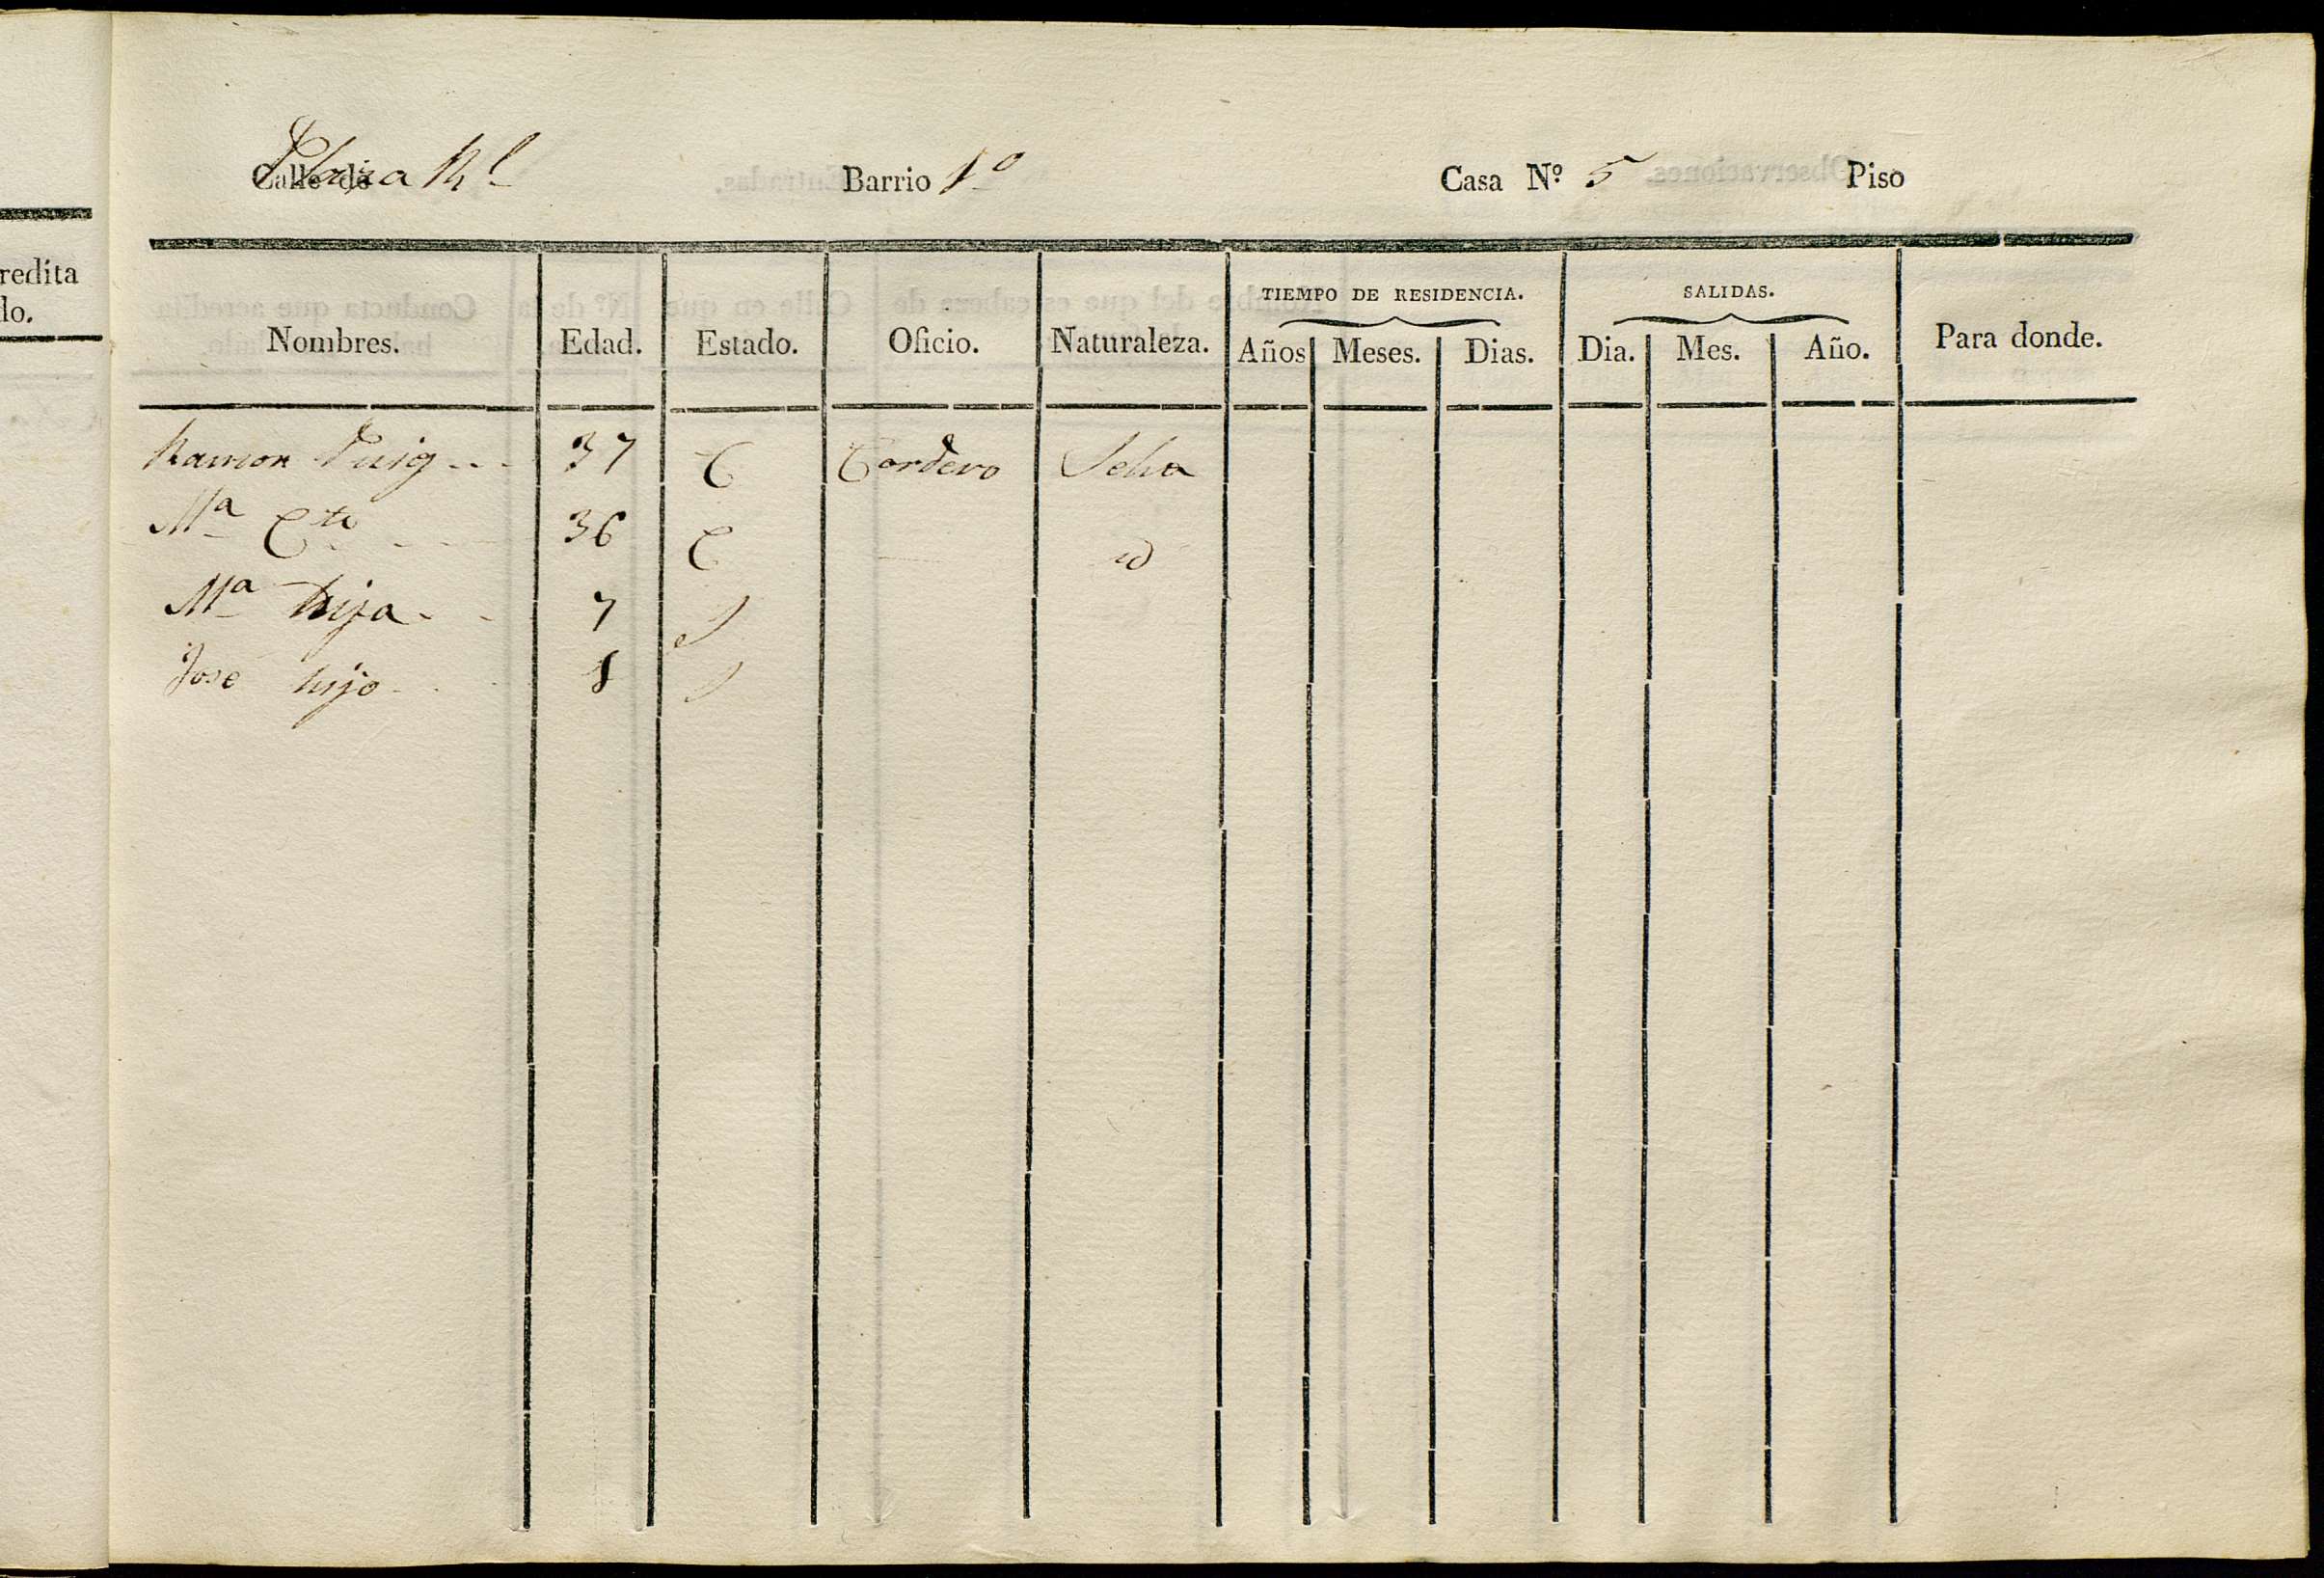 redita
lo.
Calle de Plaza Rl Barrio 1º Casa Nº 5 Piso
TIEMPO DE RESIDENCIA. SALIDAS.
Nombres. Edad. Estado. Oficio. Naturaleza. Años Meses. Dias. Dia. Mes. Año. Para donde.
Ramon Puig 37 C Cordero Selva
Mª Cta 36 C id
Mª hija 7 S
José hijo 1 S